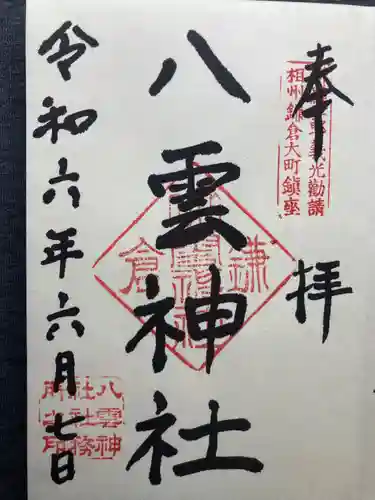 奉拝
相州鎌倉大町鎮座
義光勧請
八雲神社
鎌倉
令和六年六月七日
八雲神
社社務
所之印